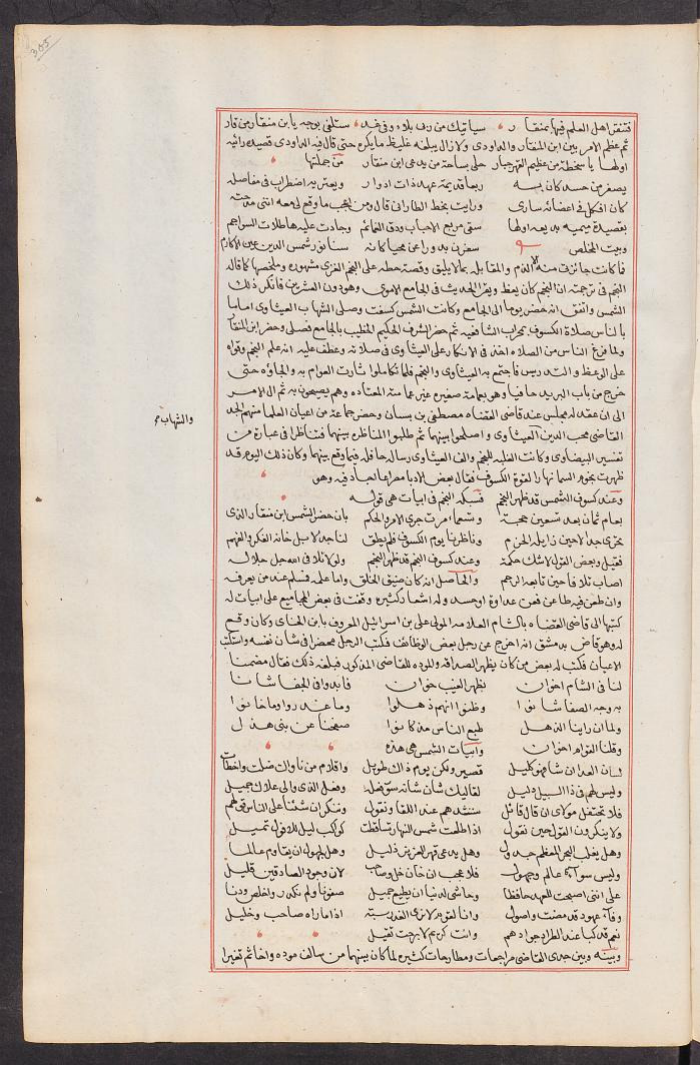 305
فتنقر اهل العلم فيها بمنقار سياتيك من ربى بلاء وفى غد ستلقى بوجه يا ابن منقار من قار
ثم عظم الامر بين ابن المنقار والداودى ولا زال يبلغه غليظ ما يكره حتى قال فيه الداودى قصيده رائيه
اولها يا سخطة من عظيم القهر جبار حلى بساحة من يدعى ابن منقار من جملتها
يصفر من حسد كان بسه ربعا قديمة عهد ذات ادوار ويعتريه اضطراب فى مفاصله
كان افكل فى اعضائه سارى ورايت بخط الطارانى قال ومن اعجب ما وقع لى معه اننى مدحته
بقصيدة ميميه بديعه اولها سقى مربع الاحباب ودق الغمائم وجادت عليه هاطلات السواجم
وبيت المخلص سفرن بدورا عن محيا كانه سنا نور شمس الدين عين الاكارم
فاكانت جائزتى منه الا الذم والمقابله بما لا يليق وقصة حطه على النجم الغزى مشهوره وملخصها كا قاله
النجم فى ترجمته ان النجم كان يعظ ويقرا الحديث فى الجامع الاموى وهو دون العشرين فانكر ذلك
الشمس واتفق انه حضر يوما الى الجامع وكانت الشمس كسفت وصلى الشهاب العيثاوى اماما
بالناس صلاة الكسوف بمحراب الشافعيه ثم حضر الشرف الحكيم الخطيب بالجامع فصلى وحضر ابن المنقار
ولما فرغ الناس من الصلاه اخذ فى الانكار على العيثاوى فى صلاته وعطف عليه انه علم النجم وقواه
على الوعظ والتدريس فاجتمع به العيثاوى والنجم فلما تكاملوا ثارت العوام به والجاؤه حتى
خرج من باب البريد حافيا وهو بعمامة صغيره غير عمامته المعتاده وهم يصيحون به ثم ال الامر
الى ان عقد له مجلس عند قاضى القضاه مصطفى بن بستان وحضر جماعة من اعيان العلما منهم الجد
والشهاب
القاضى محب الدين العيثاوى واصلحوا بينهما ثم طلبوا المناظره بينهما فتناظرا فى عبارة من
تفسير البيضاوى وكانت الغلبه للنجم والف العيثاوى رساله حافله فيما وقع بينهما وكان ذلك اليوم قد
ظهرت نجوم السما نهارا لقوة الكسوف فقال بعض الادبا مصراعا اجاد فيه وهو
وعند كسوف الشمس قد ظهر النجم فسبكه النجم فى ابيات هى قوله
بعام ثمان بعد تسعين حجة وتسعما مرت جرى الامر والحكم بان حضر الشمس ابن منقار الذى
تحرى جدالا حين زايله الحزم وناظرنا يوم الكسوف فلم يطق لنا جدلا بل خانه الفكر والفهم
فقيل وبعض القول لا شك حكمة وعند كسوف النجم قد ظهر النجم ولى كا تلافى الله جل جلاله
اصاب تلافا حين قابعه الرجم والحاصل انه كان ضيق الخلق واما علمه فمسلم عند من يعرفه
وان طعن فيه طاعن فعن عداوة او حسد وله اشعار كثيره وقفت فى بعض المجاميع على ابيات له
كتبها الى قاضى القضاه بالشام العلامه المولى على بن اسرائيل المعروف بابن الحناى وكان وقع
له وهو قاض بدمشق انه اخرج عن رجل بعض الوظائف فكتب الرجل محضرا فى شان نفسه واستكتب
الاعيان فكتب له بعض من كان يظهر الصداقه والموده للقاضى المذكور فبلغه ذلك فقال مضمنا
لنا فى الشام اخوان بظهر الغيب خوان فابدوا فى الجفا شانا
به وجه الصفا شانوا وظنوا انهم ذهلوا وما غدروا وما خانوا
ولما ان راينا الذهل طبع الناس مذ كانوا صفحنا عن بنى هذل
وقلنا القوم اخوان وابيات الشمس هى هذه
لسان العدا ان شانهو كليل قصير ولكن يوم ذاك طويل واقلام من ناواك ضلت واخطات
وليس لهم فى ذا السبيل دليل لقا ليك شان شانه سؤ فعله وفضل الذى والى علاك جميل
فلا تحتفل مولاى ان قال قائل ستشدهم عند اللقا ونقول وننكر ان شئنا على الناس قولهم
ولا ينكرون القول حين نقول اذا اطلعت شمس النهار تساقطت كواكب ليل للافول تميل
وهل يغلب البحر المعظم جدول وهل يدعى قهر العزيز ذليل وهل لجهول ان يقاوم عالما
وليس سوآء عالم وجهول فلا عجب ان خان خل وصاحب لان وجود الصادقين قليل
على اننى اصبحت للعهد حافظا وحاشى لدنيا ان يطيع جميل صفونا ولم نكدر واخلص ودنا
وفآء عهود قد مضت واصول وانا لقوم لا نرى الغدر سبة اذا ما راه صاحب وخليل
نعم قد كبا عند الطراد جوادهم وانت كريم لا برحت تقيل
وبينه وبين جدى القاضى مراجعات ومطارحات كثيره لما كان بينهما من سالف موده واخا ثم تغيرا